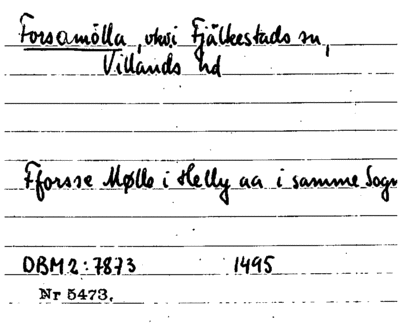 Forsamölla, vkvi Fjälkestads sn,
Villands hd
Fforsse Mølle i Helly aa i samme Sogn
DBM2:7873 1495
Nr 5473.